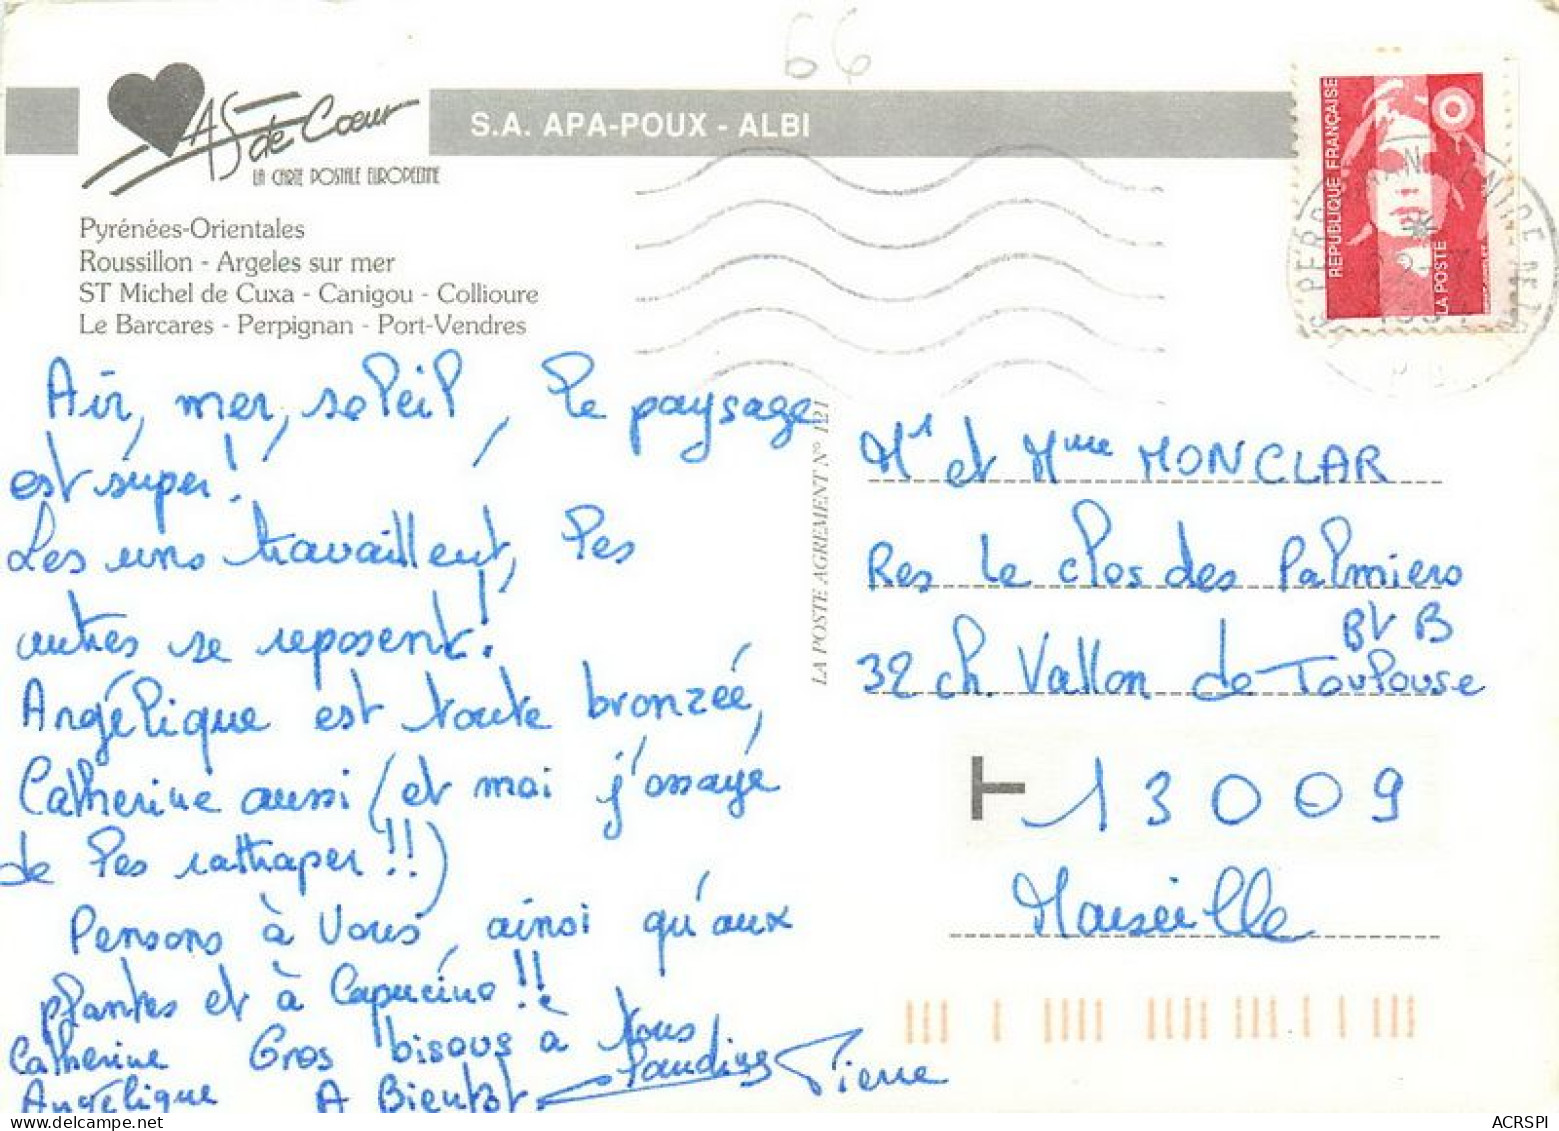 66
AS de Cœur
LA CARTE POSTALE EUROPEENNE
S.A. APA-POUX - ALBI
REPUBLIQUE FRANÇAISE
LA POSTE
Pyrénées-Orientales
Roussillon - Argeles sur mer
ST Michel de Cuxa - Canigou - Collioure
Le Barcares - Perpignan - Port-Vendres
Air, mer, soleil, le paysage
est super !
Les uns travaillent, les
autres se reposent !
Angélique est toute bronzée,
Catherine aussi (et moi j'essaye
de les rattraper !!)
Pensons à Vous, ainsi qu'aux
plantes et à Capucine !!
Gros bisous à tous
A Bientôt
Catherine
Angélique
Claudine
Pierre
LA POSTE AGREMENT N° 121
Mr et Mme MONCLAR
Res Le Clos des Palmiers
Bt B
32 ch. Vallon de Toulouse
13009
Marseille
ACRSPI